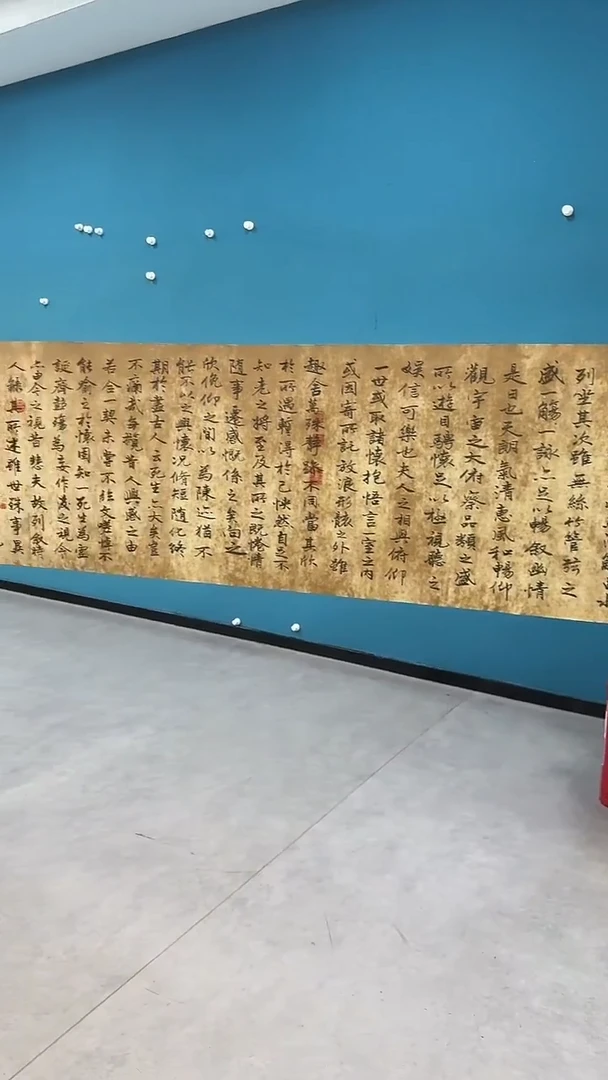 列坐其次雖無絲竹管弦之
盛一觴一詠亦足以暢敘幽情
是日也天朗氣清惠風和暢仰
觀宇宙之大俯察品類之盛
所以遊目騁懷足以極視聽之
娛信可樂也夫人之相與俯仰
一世或取諸懷抱悟言一室之內
或因寄所託放浪形骸之外雖
趣舍萬殊靜躁不同當其欣
於所遇暫得於己快然自足不
知老之將至及其所之既惓情
隨事遷感慨係之矣向之
欣俛仰之間以為陳迹猶不
能不以之興懷況脩短隨化終
期於盡古人云死生亦大矣豈
不痛哉每攬昔人興感之由
若合一契未嘗不臨文嗟悼不
能喻之於懷固知一死生為虛
誕齊彭殤為妄作後之視今
亦由今之視昔悲夫故列敘時
人錄其所述雖世殊事異